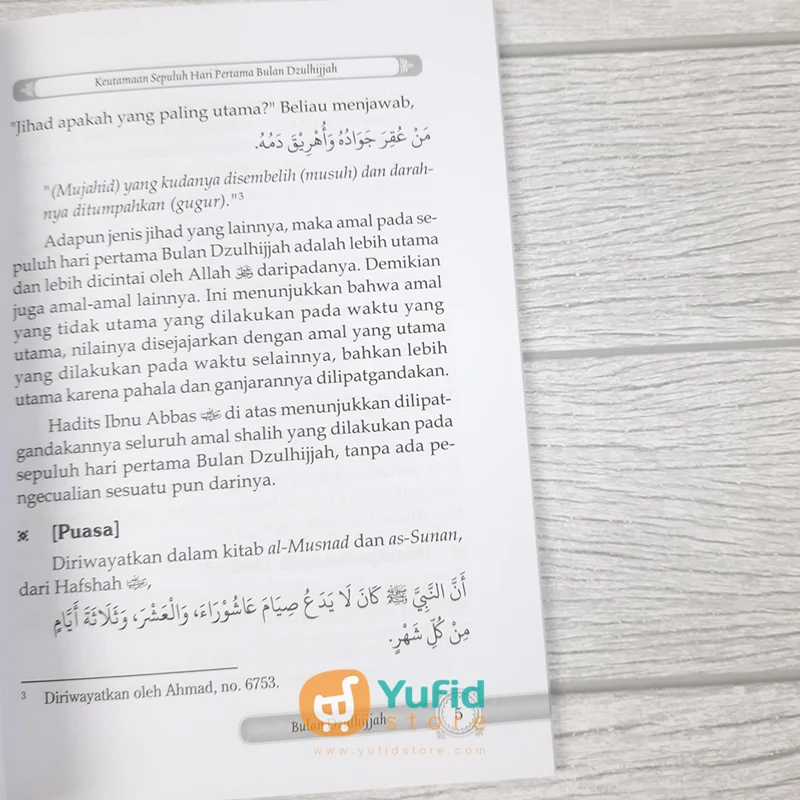 Keutamaan Sepuluh Hari Pertama Bulan Dzulhijjah
"Jihad apakah yang paling utama?" Beliau menjawab,
مَنْ عُقِرَ جَوَادُهُ وَأُهْرِيْقَ دَمُهُ.
"(Mujahid) yang kudanya disembelih (musuh) dan darah-
nya ditumpahkan (gugur)."3
Adapun jenis jihad yang lainnya, maka amal pada se-
puluh hari pertama Bulan Dzulhijjah adalah lebih utama
dan lebih dicintai oleh Allah ﷻ daripadanya. Demikian
juga amal-amal lainnya. Ini menunjukkan bahwa amal
yang tidak utama yang dilakukan pada waktu yang
utama, nilainya disejajarkan dengan amal yang utama
yang dilakukan pada waktu selainnya, bahkan lebih
utama karena pahala dan ganjarannya dilipatgandakan.
Hadits Ibnu Abbas di atas menunjukkan dilipat-
gandakannya seluruh amal shalih yang dilakukan pada
sepuluh hari pertama Bulan Dzulhijjah, tanpa ada pe-
ngecualian sesuatu pun darinya.
[Puasa]
Diriwayatkan dalam kitab al-Musnad dan as-Sunan,
dari Hafshah ,
أَنَّ النَّبِيَّ ﷺ كَانَ لَا يَدَعُ صِيَامَ عَاشُوْرَاءَ، وَالْعَشْرَ، وَثَلَاثَةَ أَيَّامٍ
مِنْ كُلِّ شَهْرٍ.
3 Diriwayatkan oleh Ahmad, no. 6753.
Bulan Dzulhijjah 5
Yufid
store
www.yufidstore.com